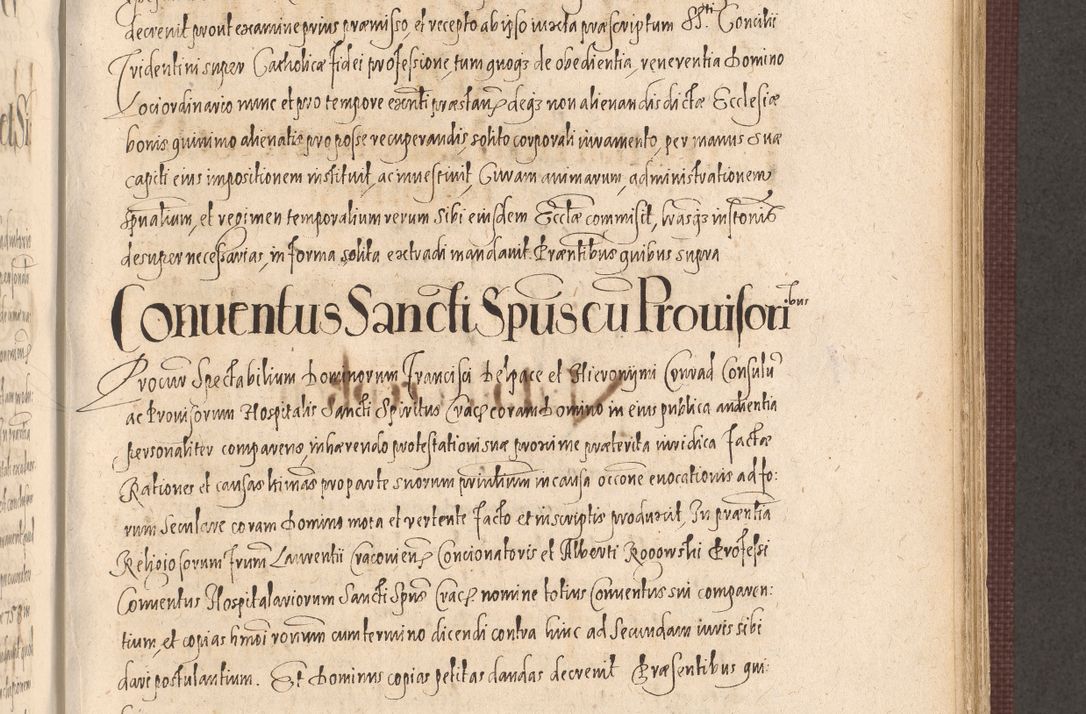 decrenit prout examine prius præmisso, et recepto ab ipso iuxta præscriptum Sti Concilii
Tridentini super Catholicæ fidei professione, tum quoqȝ de obedientia, reverentia Domino
Lociordinario nunc et pro tempore exnti præstan, deqȝ non alienandis dictæ Ecclesiæ
bonis quinimo alienatis pro posse recuperandis, solito corporali iuramento, per manus suæ
capiti eius impositionem instituit, ac inuestiuit, Curam animarum, administrationem
spualium, et regimen temporalium rerum sibi eiusdem Ecclæ commisit, literasqȝ
desuper necessarias, in forma solita extradi mandauit. Præntibus quibus supra
Conuentus Sancti Spus cu Prouisoribus
Procur Spectabilium Dominorum Francisci Delpace et Hieronymi Conrad Consulu
ac Prouisorum Hospitalis Sancti Spiritus Crac coram Domino in eius publica audientia
personaliter comparens, inhærendo protestationi suæ proxime præterita iuridica factæ
Rationes et causas ltimas pro parte suorum prinlium in causa occone euocationis ad fo:
rum Seculare coram Domino mota et vertente facto et in scriptis produxit, In præntia
Religiosorum frum Laurentii Cracouien Concionatoris et Alberti Rogowski Professi
Conuentus Hospitalariorum Sancti Spus Crac nomine totius Conuentus sui comparen:
tium, et copias hmoi ronum cum termino dicendi contra hinc ad Secundam iuris sibi
dari postulantium. Et Dominus copias petitas dandas decrenit Præsentibus qui: